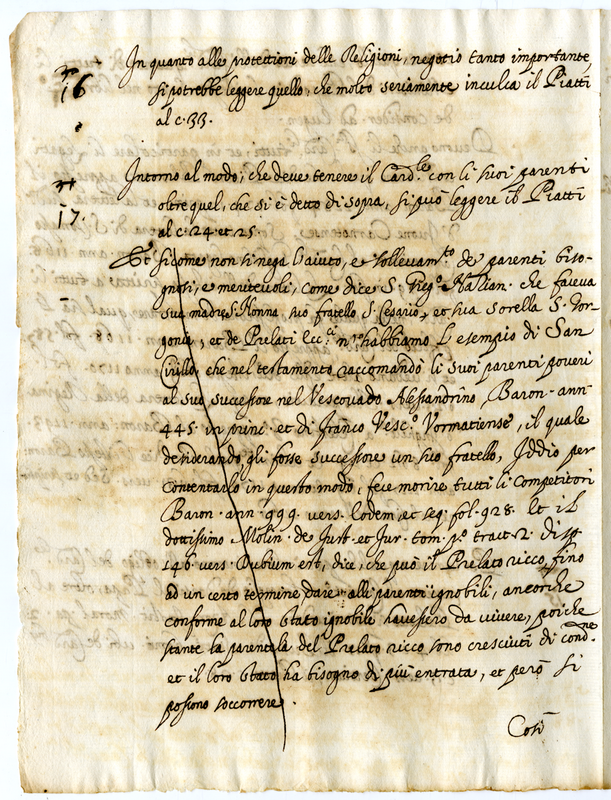 16 In quanto alle protettioni delle Religioni, negotio tanto importante,
si potrebbe leggere quello, che molto seriamente inculca il Piatti
al c. 33.
17. Intorno al modo, che deve tenere il Card.le con li suoi parenti
oltre quel, che si è detto di sopra, si può leggere il Piatti
al c. 24. et 25.
Et sicome non si nega l'aiuto, e sollevam.to de parenti biso-
gnosi, e meritevoli, come dice S. Greg.o Nazian. che faceva
sua madre S. Nonna, suo fratello S. Cesario, et sua sorella S. Gor-
gonia, et de Prelati Ecc.ci n'habbiamo l'esempio di San
Cirillo, che nel testamento raccomandò li suoi parenti poveri
al suo successore nel Vescovado Alessandrino, Baron. ann.
445. in princ. et di Franco Vesc.o Vormatiense, il quale
desiderando gli fosse successore un suo fratello, Iddio per
contentarlo in questo modo, fece morire tutti li competitori
Baron. ann. 999. vers. Eodem, et seq. fol. 928. Et il
dottissimo Molin. de Just. et Jur. tom. p.o tract. 2. disp.
146. vers. Dubium est, dice, che può il Prelato ricco, fino
ad un certo termine, dare alli parenti ignobili, ancorche
conforme al loro stato ignobili havessero da vivere, poiche
stante la parentela del Prelato ricco sono cresciuti di cond.ne
et il loro stato ha bisogno di più entrata, et però si
possono soccorrere.
Così